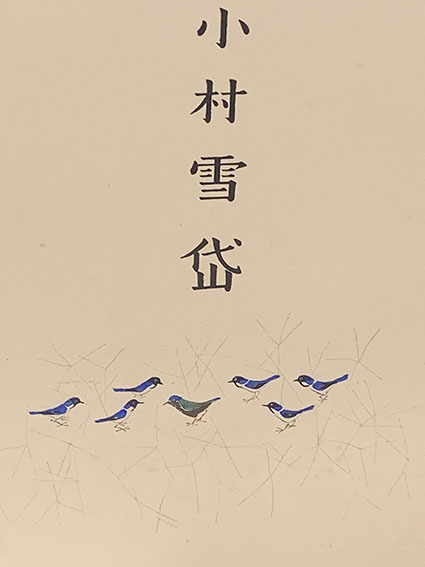 小村雪岱